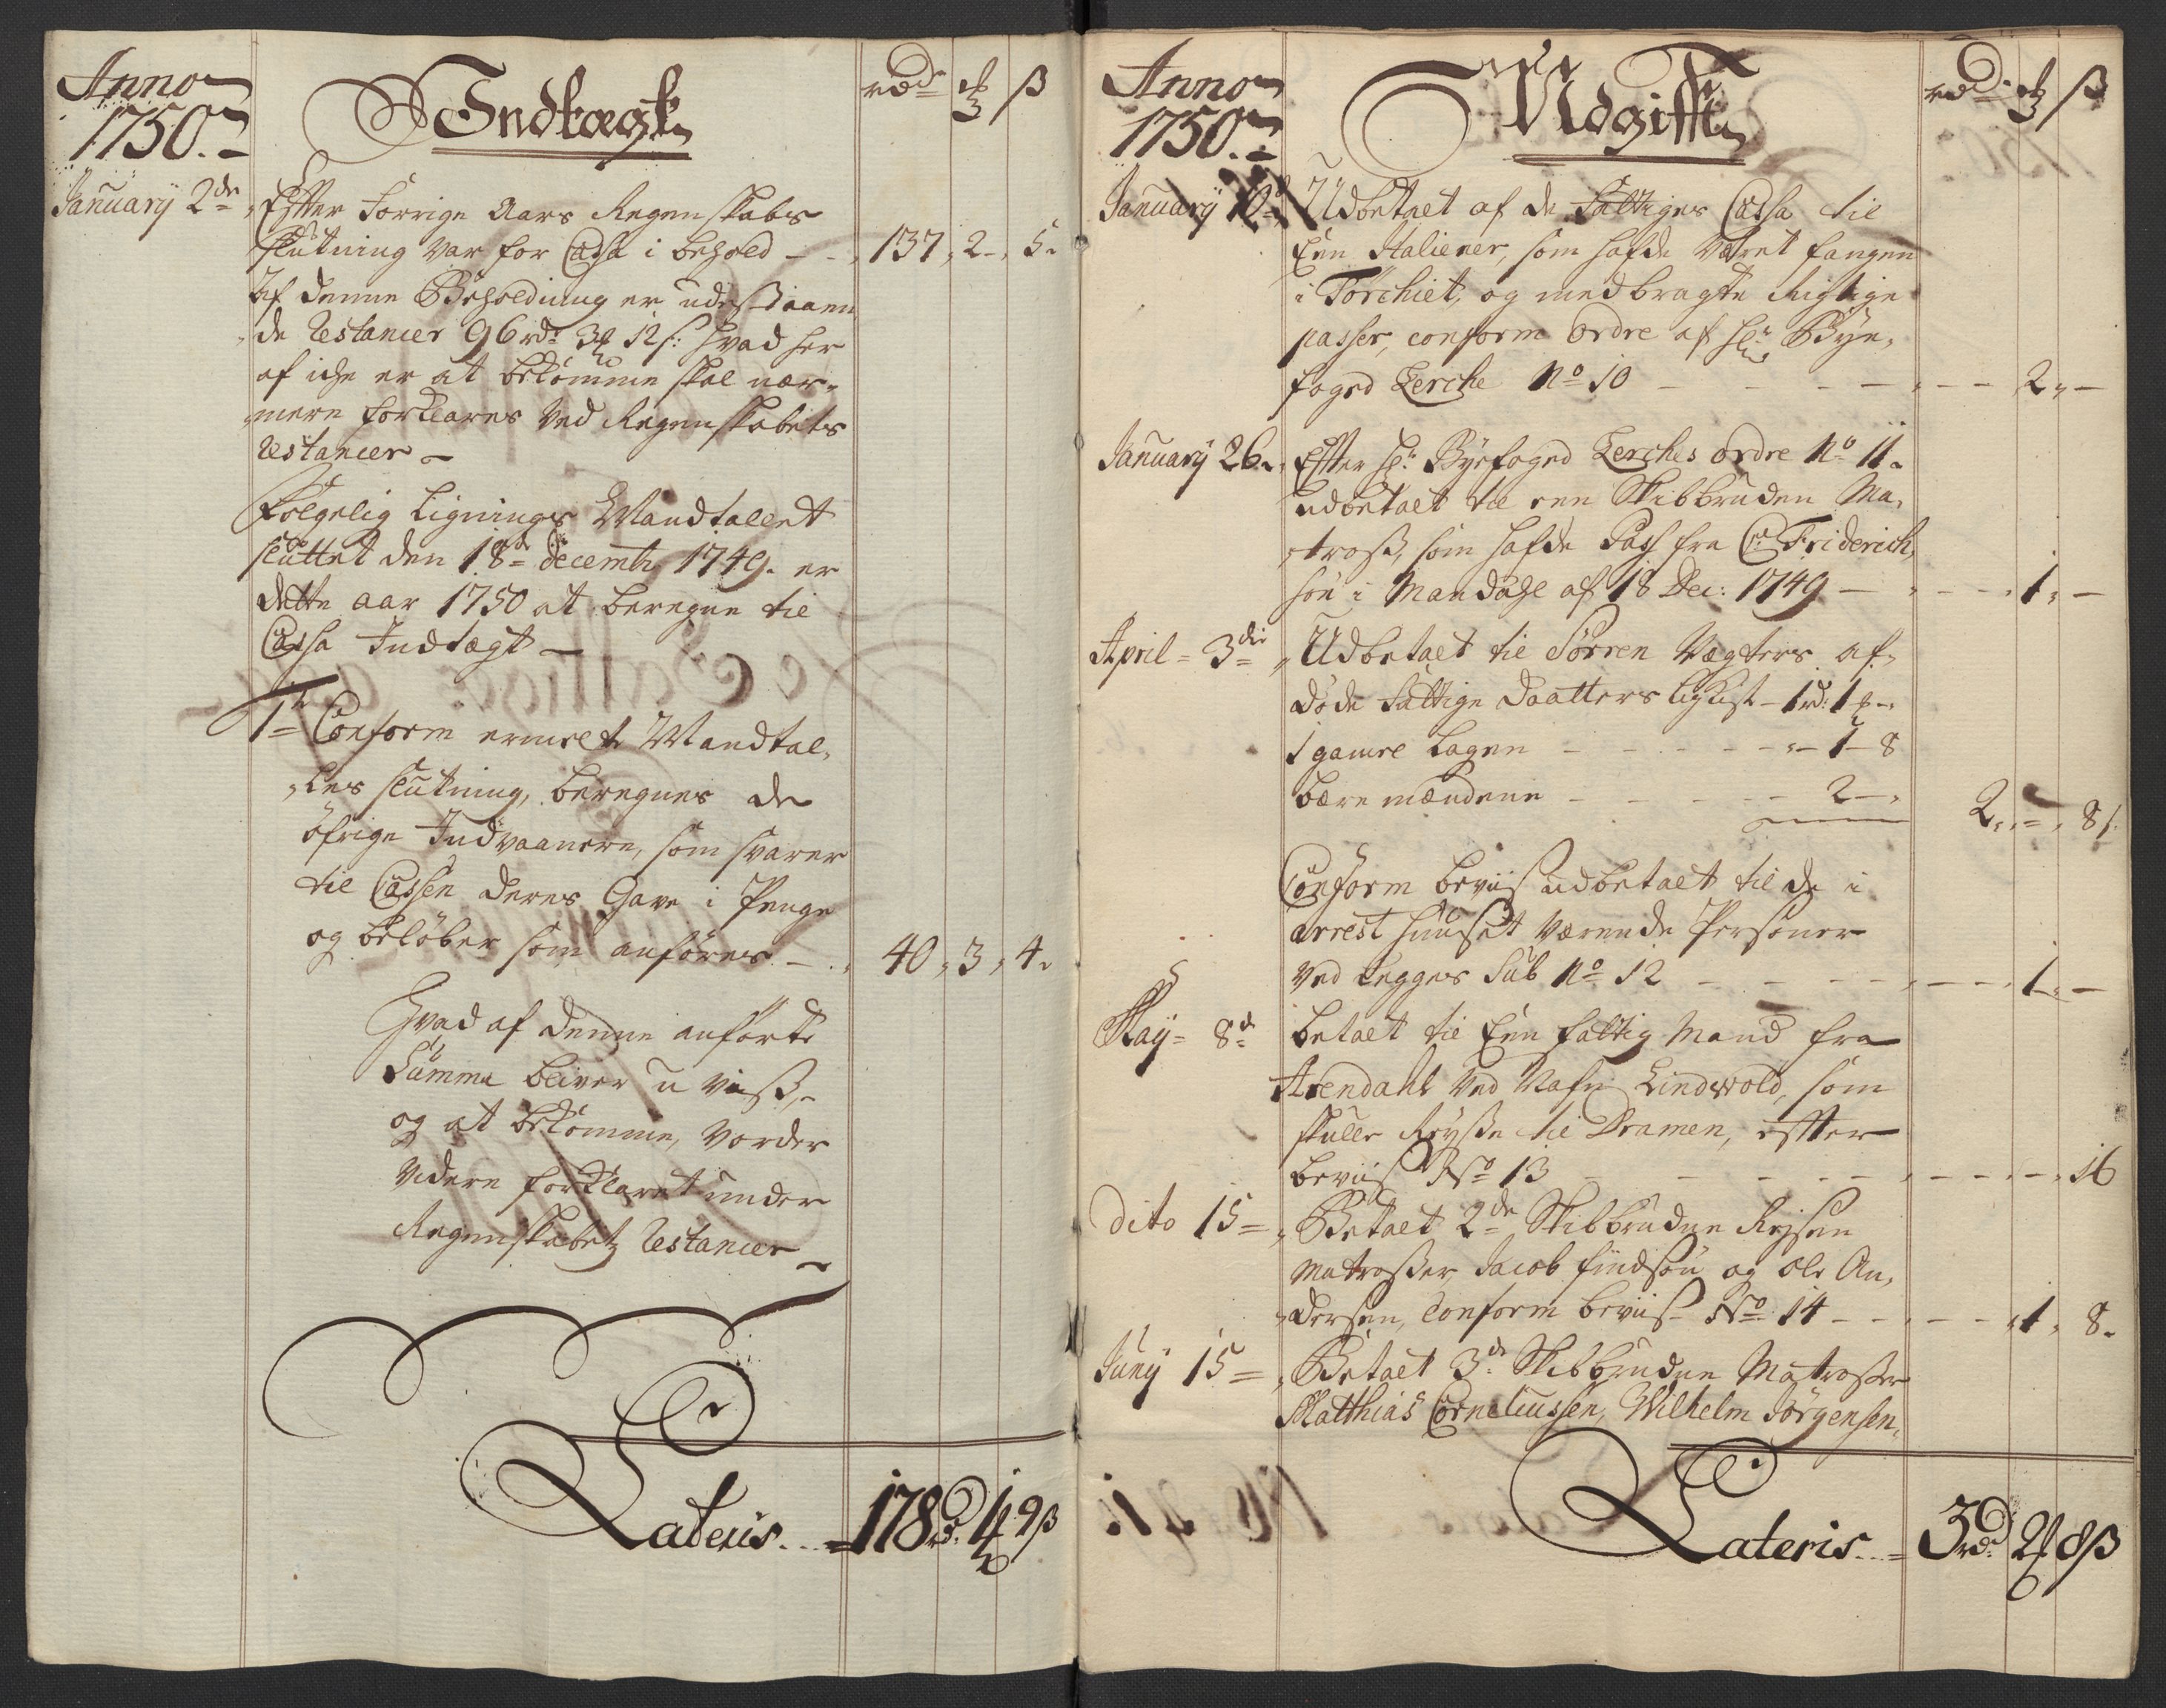 Anno
1750.
Indtægt
rdr
ß
January 2de
Efter Forrige Aars Regenskabs
Slutning var for Cassa i behold - - 137, 2, 5.
Af denne Beholdning er udestaaen
de Restancer 96 rdr 3 12 s: hvad her
af iche er at bekomme skal nær-
mere forklares Ved Regenskabets
Restancer
Følgelig Lignings Mandtallet
sluttet den 18de decembr 1749. er
dette aar 1750 at beregne til
Cassa Indtægt
1te Conform ermelte Mandtal-
les slutning, beregnes de
øfrige Indvaanere, som svarer
til Cassen deres Gave i Penge
og beløber som anføres - 40, 3, 4.
Hvad af denne anførte
Summa bliver u viss,
og at bekomme, vorder
videre forklaret under
Regenskabetz Restancer
Lateris... 178 rd 1 9 ß
Anno
1750.
Udgifft
rdr
ß
January 10
Udbetalt af de Fattiges Cassa til
Een Italiener, som hafde Været fangen
i Törchiet, og medbragte Rigtige
passer, conform Ordre af Hr Bye-
foged Lerche No 10 - - - 2, -
January 26.
Efter Hr Byefoged Lerches ordre No 11.
udbetalt til een Skibbruden Ma-
tross, som hafde Pass fra Friderich
sön i Mandahl af 18 Dec: 1749 - - - 1, -
April 3die
Udbetalt til Sörren Vegters af-
döde Fattige Daatters Ligkist - 1 rd: 1
1 gamel Lagen - - - 1 - 8
bære mændene - - - 2 -
2, -, 8 s.
Conform beviis udbetalt til de i
arrest huuset Værende Personer
Ved Legges Sub No 12 - - - 1, -
May 8de
betalt til Een fattig Mand fra
Arendahl Ved Nafn Lindvold, som
skulle Reysse til Dramen, efter
beviis No 13 - - - 16
dito 15
Betalt 2de Skibbrudne Rejsen
Matrosser, Jacob findsön og Ole An-
dersen, Conform beviis No 14 - - 1, 8.
Juny 15
Betalt 3de Skibbrudne Matrosser
Matthias Corneliussen, Wilhelm Jörgensen,
Lateris... 3 rd 2 8 ß